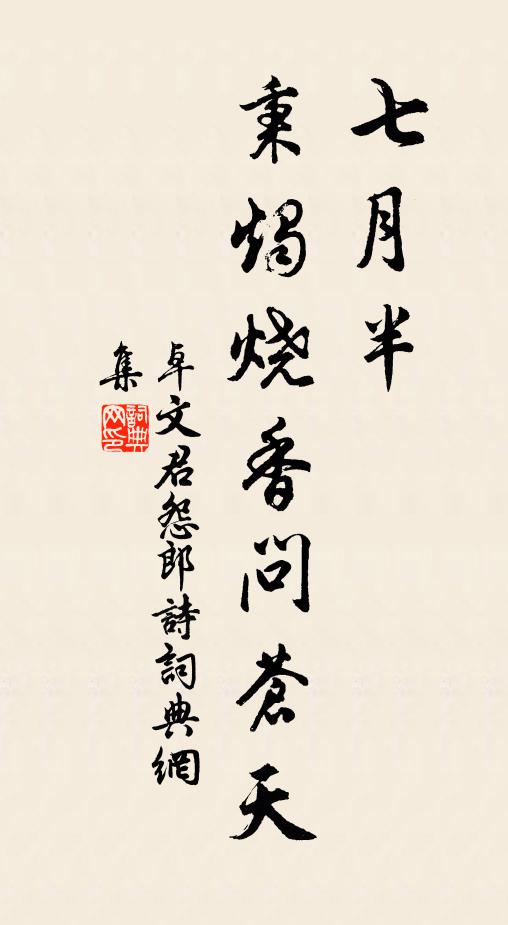 七月半
秉烛烧香問蒼天
卓文君怨郎詩詞典網
集
詞典
网印